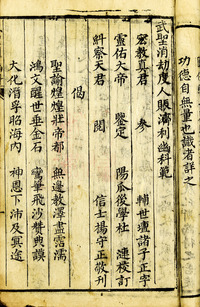 功德自無量也識者詳之
武聖消劫度人賑濟利幽科範
宏教真君　參　輔世壇諸子正字
靈佑大帝　鑒定　陽瓜後學社　謹校訂
糾察天君　閱　信士楊守正敬刊
偈
聖諭煌煌壯帝都　無邊教澤盡霑濡
鴻文醒世垂金石　鸞筆飛沙贊典謨
大化潛孚昭海內　神恩下沛及冥途